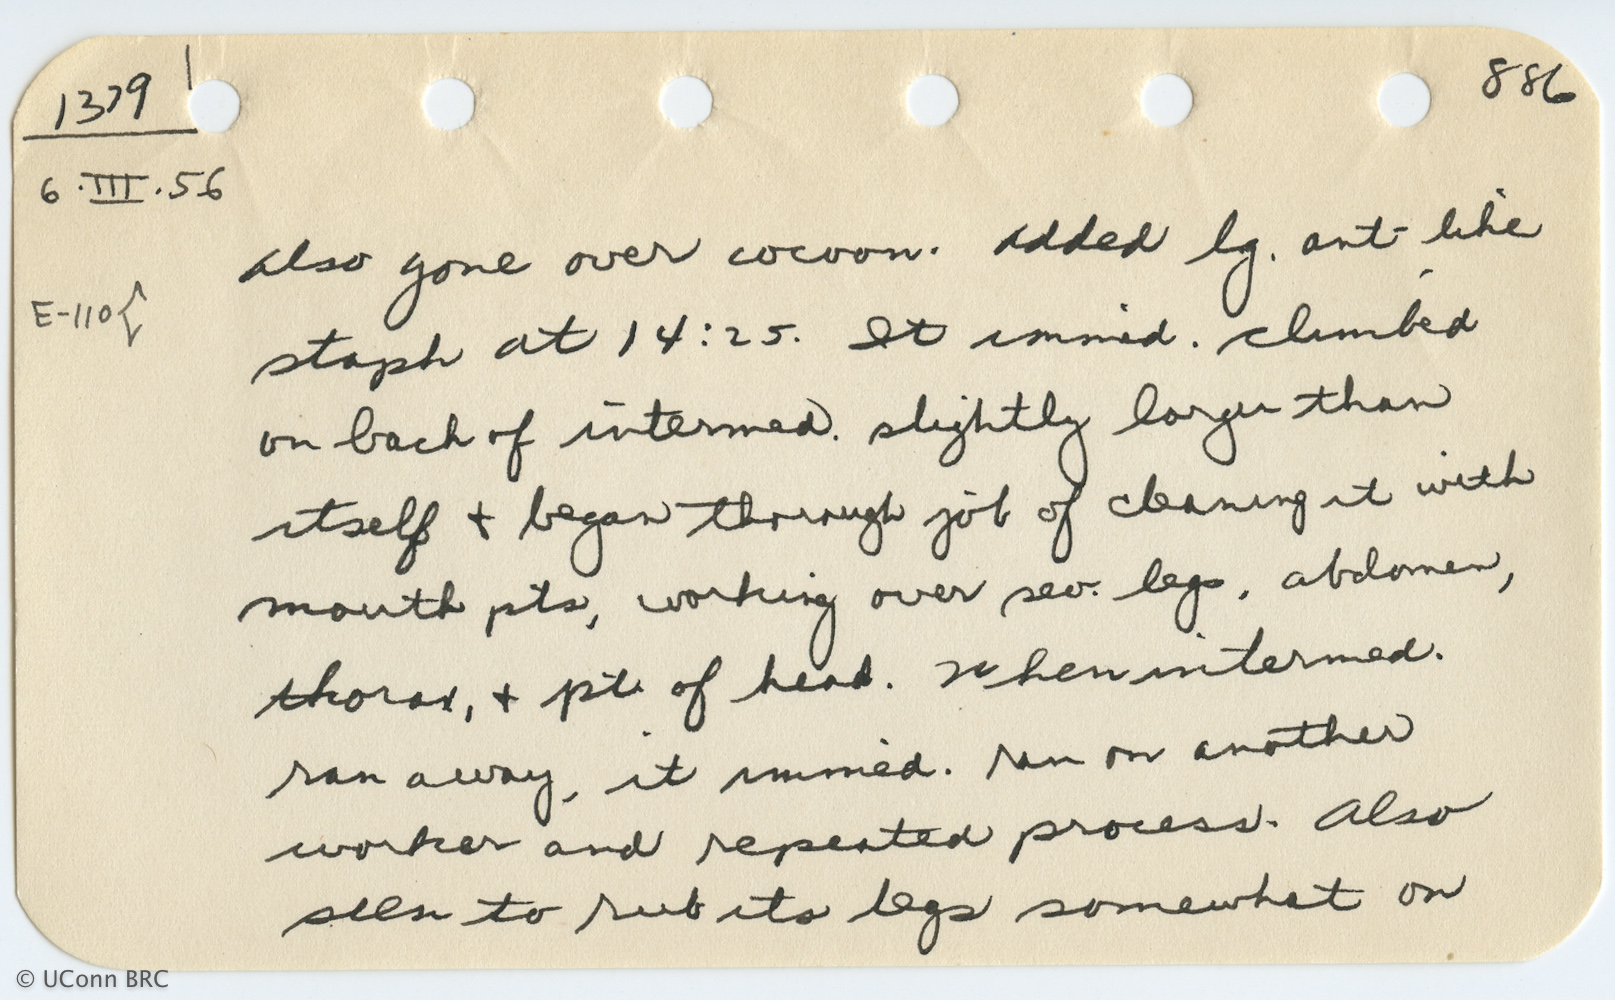 1379
886
6.III.56
E-110{
also gone over cocoon. Added lg. ant-like
staph at 14:25. It immed. climbed
on back of intermed. slightly larger than
itself + began thorough job of cleaning it with
mouth pts, working over sev. legs, abdomen,
thorax, + pt. of head. When intermed.
ran away, it immed. ran on another
worker and repeated process. Also
seen to rub its legs somewhat on
© UConn BRC